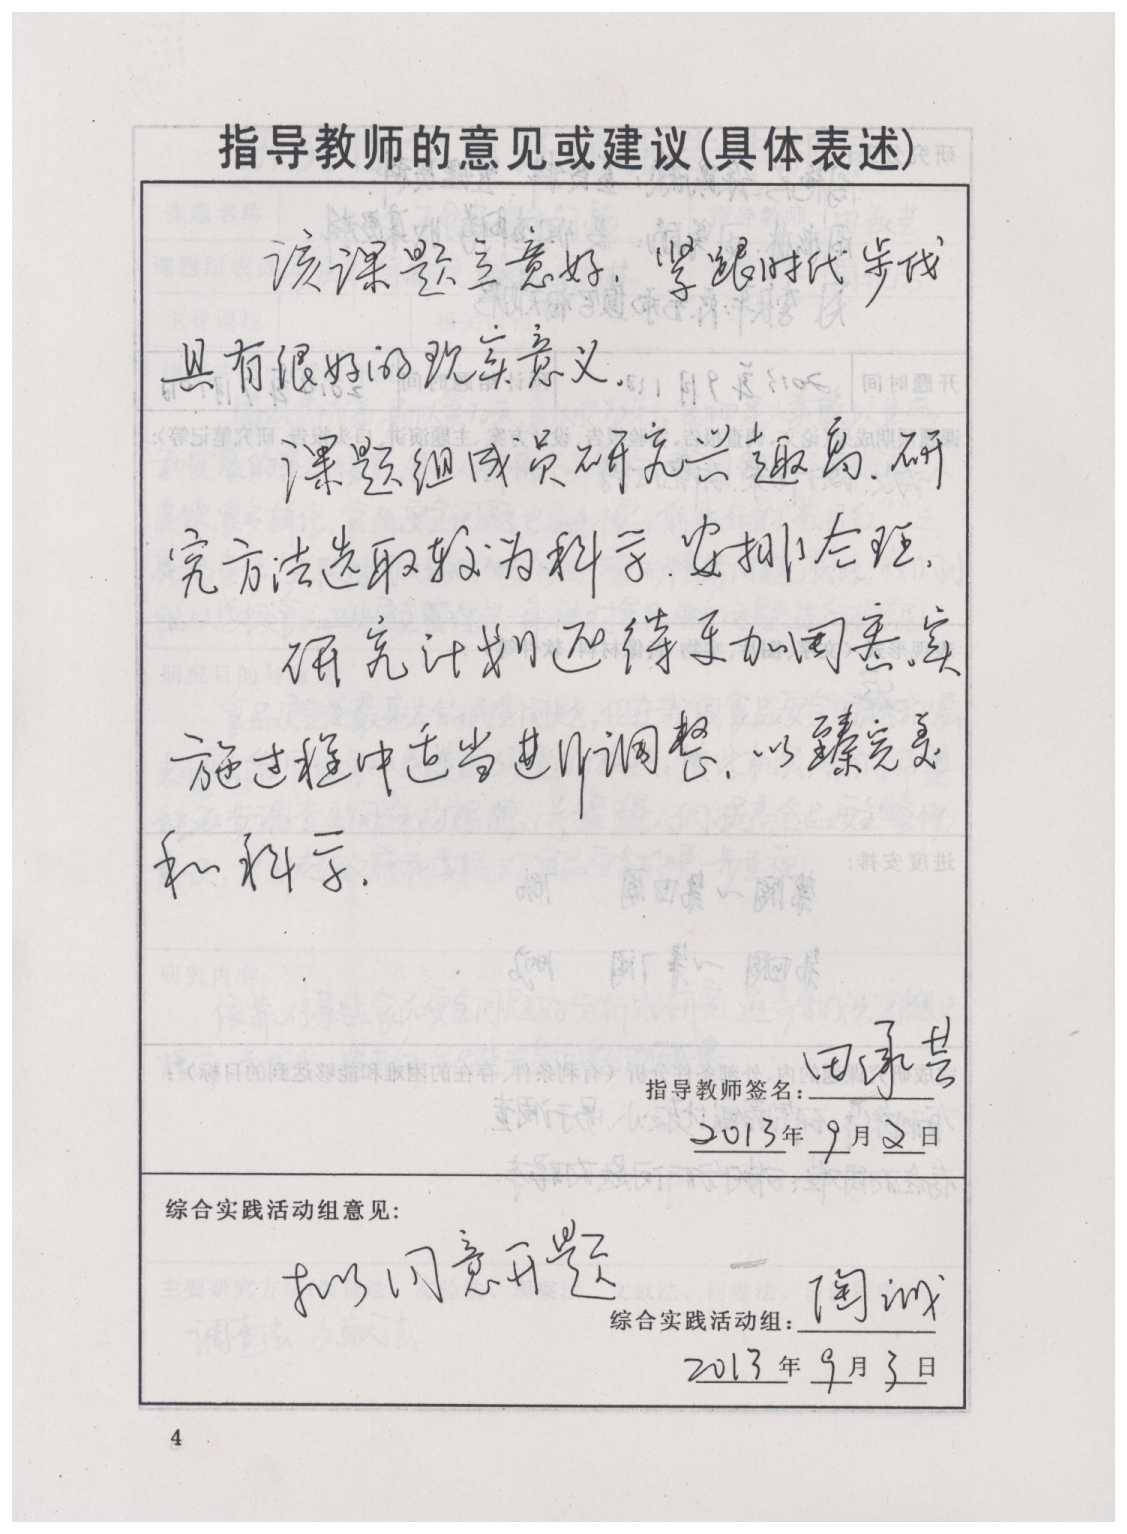 指导教师的意见或建议(具体表述)
该课题立意好，紧跟时代步伐
具有很好的现实意义。
课题组成员研究兴趣高，研
究方法选取较为科学，安排合理。
研究计划还待更加周密，实
施过程中适当进行调整，以臻完美
和科学。
指导教师签名：田承芸
2013年 9月2日
综合实践活动组意见：
拟同意开题
综合实践活动组：陶诚
2013年 9月3日
4